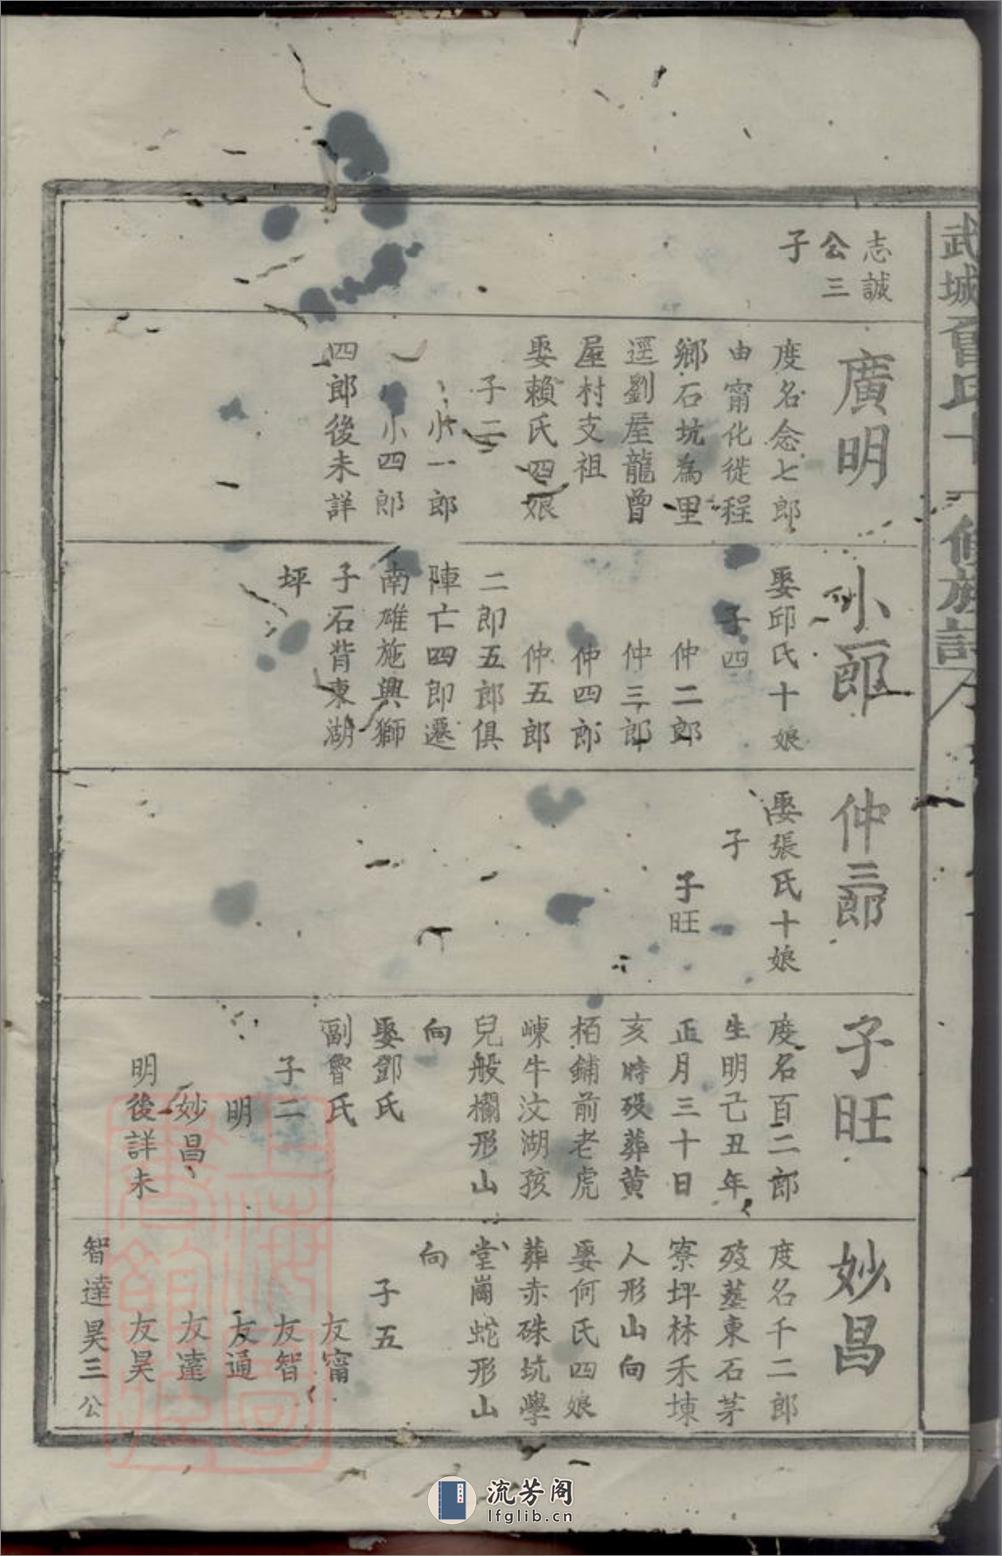 武城曾氏十一修族譜
志誠
公三
子
廣明
度名念七郎
由甯化徙程
鄉石坑為里
逕劉屋龍曾
屋村支祖
娶賴氏四娘
子二
小一郎
小四郎
四郎後未詳
小一郎
娶邱氏十娘
子四
仲二郎
仲三郎
仲四郎
仲五郎
二郎五郎俱
陣亡四郎遷
南雄施興獅
子石背東湖
坪
仲三郎
娶張氏十娘
子
子旺
子旺
度名百二郎
生明己丑年
正月三十日
亥時歿葬黃
栢鋪前老虎
崠牛汶湖孩
兒般欄形山
向
娶鄧氏
副曾氏
子二
明
妙昌
明後詳未
妙昌
度名千二郎
歿墓東石茅
寮坪林禾埬
人形山向
娶何氏四娘
葬赤硃坑學
堂崗蛇形山
向
子五
友甯
友智
友通
友達
友昊
智達昊三公
流芳阁
lfglib.cn